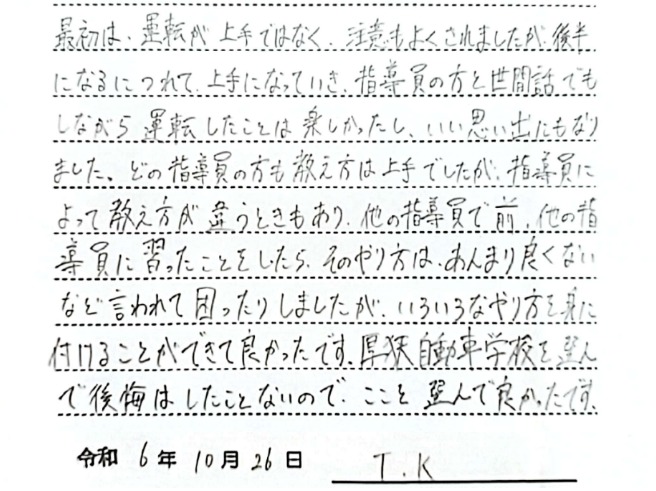 最初は、運転が上手ではなく、注意もよくされましたが、後半
になるにつれて、上手になっていき、指導員の方と世間話でも
しながら運転したことは楽しかったし、いい思い出にもなり
ました。どの指導員の方も教え方は上手でしたが、指導員に
よって教え方が違うときもあり、他の指導員で前、他の指
導員に習ったことをしたら、そのやり方は、あんまり良くない
など言われて困ったりしましたが、いろいろなやり方を身に
付けることができて良かったです。厚狭自動車学校を選ん
で後悔はしたことないので、ここを選んで良かったです。
令和 6年 10月 26日 T.K